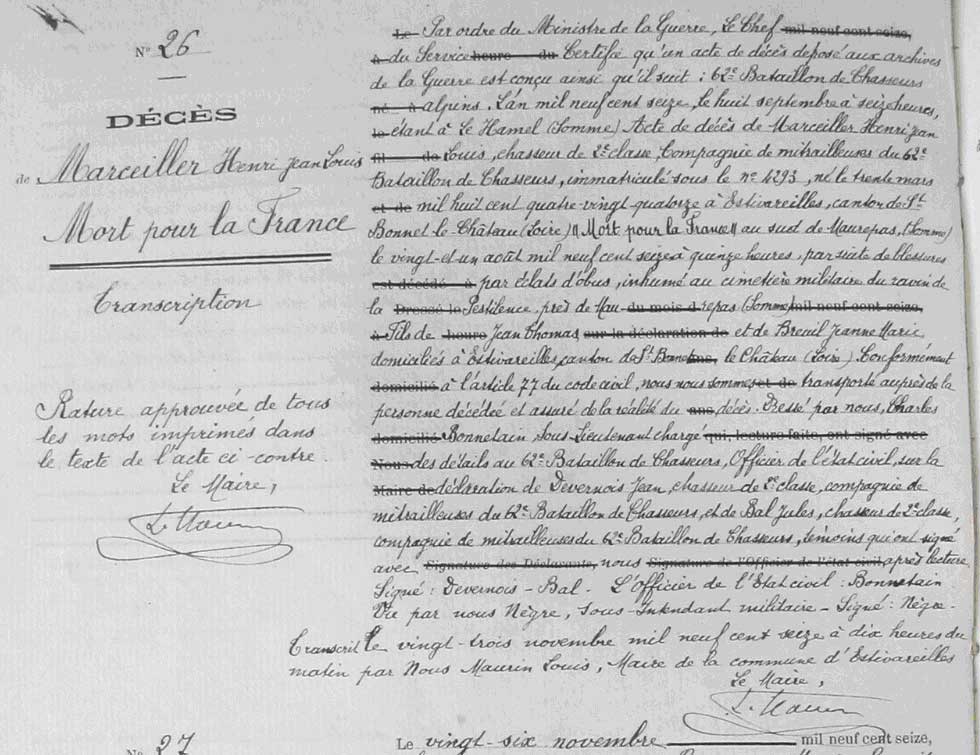 N° 26
DÉCÈS
de Marceiller Henri Jean Louis
Mort pour la France
Transcription
Rature approuvée de tous
les mots imprimés dans
le texte de l'acte ci-contre.
Le Maire,
L. Maurin
Le Par ordre du Ministre de la Guerre, Le Chef mil neuf cent seize,
à du Service heure du Certifie qu'un acte de décès déposé aux archives
de la Guerre est conçu ainsi qu'il suit : 62e Bataillon de Chasseurs
né à alpins. L'an mil neuf cent seize, le huit septembre à seize heures,
le étant à Le Hamel (Somme) Acte de décès de Marceiller Henri Jean
fil de Louis, chasseur de 2e classe, Compagnie de mitrailleuses du 62e
Bataillon de Chasseurs, immatriculé sous le n° 4293, né le trente mars
et de mil huit cent quatre-vingt-quatorze à Estivareilles, canton de St
Bonnet-le-Château (Loire) "Mort pour la France" au sud de Maurepas, (Somme)
le vingt-et-un août mil neuf cent seize à quinze heures, par suite de blessures
est décédé à par éclats d'obus, inhumé au cimetière militaire du ravin de
la Dressé le Pestilence, près de Mau- du mois d repas (Somme) mil neuf cent seize,
à Fils de heure Jean Thomas sur la déclaration de et de Breuil Jeanne Marie
domiciliés à Estivareilles, canton de St Bonnet ans, le Château (Loire). Conformément
domicilié à l'article 77 du code civil, nous nous sommes et de transporté auprès de la
personne décédée et assuré de la réalité du ans, décès. Dressé par nous, Charles
domicilié Bonnetain Sous-Lieutenant chargé qui, lecture faite, ont signé avec
Nous des détails au 62e Bataillon de Chasseurs, Officier de l'état civil, sur la
Maire de déclaration de Devernois Jean, chasseur de 2e classe, compagnie de
mitrailleuses du 62e Bataillon de Chasseurs, et de Bal Jules, chasseur de 2e classe,
compagnie de mitrailleuses du 62e Bataillon de Chasseurs, témoins qui ont signé
avec Signature des Déclarants, nous Signature de l'Officier de l'état civil, après lecture
Signé : Devernois - Bal - L'Officier de l'Etat civil : Bonnetain
Vu par nous Nègre, Sous-Intendant militaire - Signé : Nègre -
Transcrit le vingt-trois novembre mil neuf cent seize à dix heures du
matin par Nous Maurin Louis, Maire de la commune d'Estivareilles
Le Maire,
L. Maurin
N° 27
Le vingt-six novembre mil neuf cent seize,